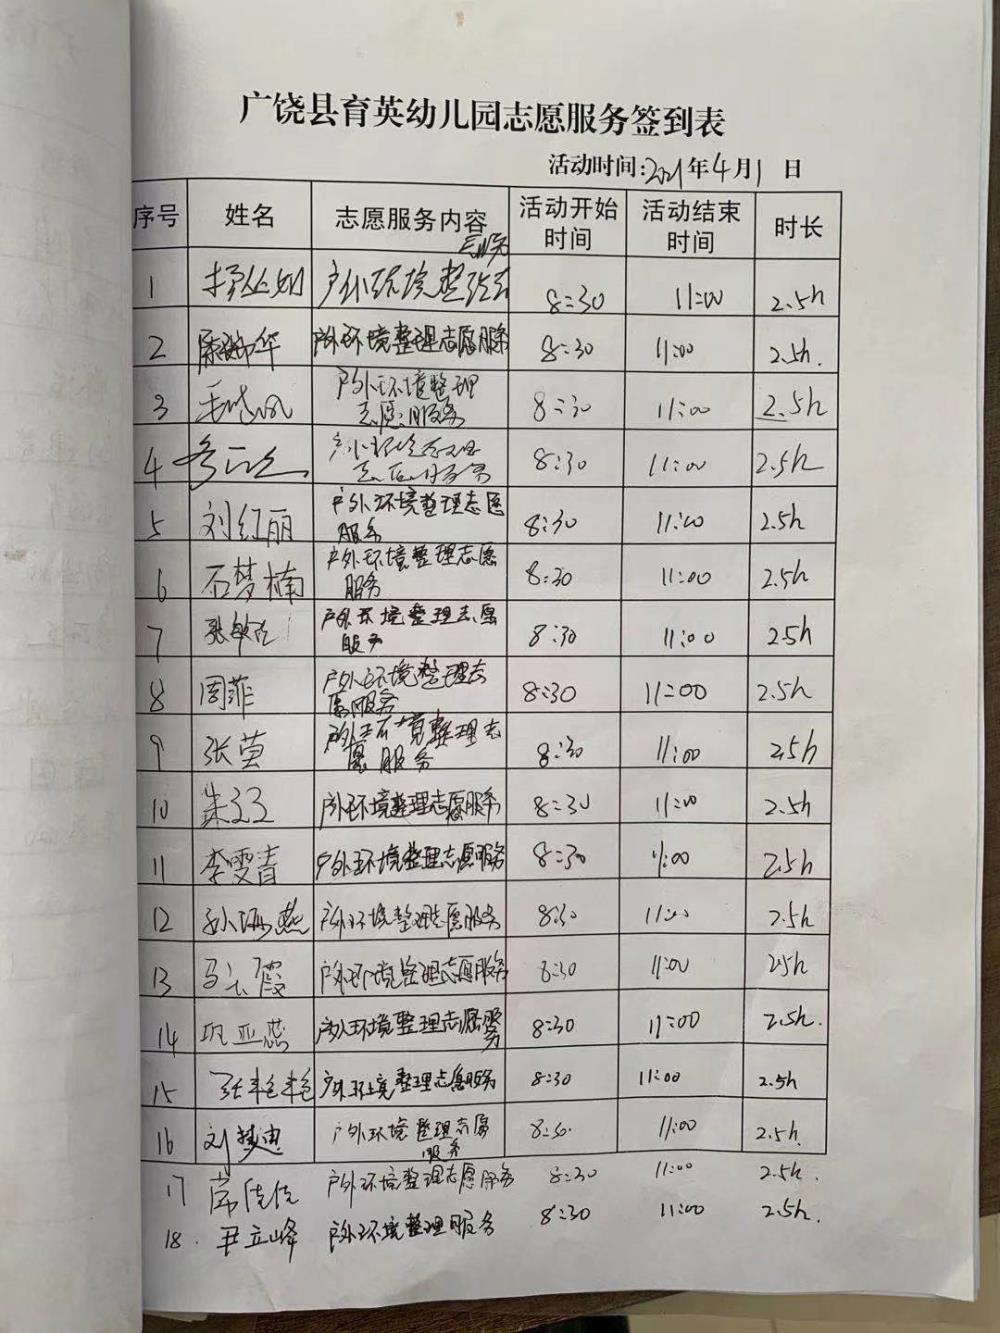 广饶县育英幼儿园志愿服务签到表
活动时间:2021年4月1日
序号 姓名 志愿服务内容 活动开始时间 活动结束时间 时长
1 户外环境整理志愿服务 8:30 11:00 2.5h
2 户外环境整理志愿服务 8:30 11:00 2.5h.
3 户外环境整理志愿服务 8:30 11:00 2.5h
4 8:30 11:00 2.5h
5 刘红丽 户外环境整理志愿服务 8:30 11:00 2.5h
6 石梦楠 户外环境整理志愿服务 8:30 11:00 2.5h
7 张敏 户外环境整理志愿服务 8:30 11:00 2.5h
8 周菲 户外环境整理志愿服务 8:30 11:00 2.5h
9 张萤 户外环境整理志愿服务 8:30 11:00 2.5h
10 朱 户外环境整理志愿服务 8:30 11:00 2.5h
11 李雯青 户外环境整理志愿服务 8:30 11:00 2.5h
12 孙海燕 户外环境整理志愿服务 8:30 11:00 2.5h
13 马云霞 户外环境整理志愿服务 8:30 11:00 2.5h
14 巩亚蕊 户外环境整理志愿服务 8:30 11:00 2.5h.
15 张艳艳 户外环境整理志愿服务 8:30 11:00 2.5h
16 刘梦迪 户外环境整理志愿服务 8:30 11:00 2.5h.
17 户外环境整理志愿服务 8:30 11:00 2.5h.
18. 尹立峰 户外环境整理服务 8:30 11:00 2.5h.